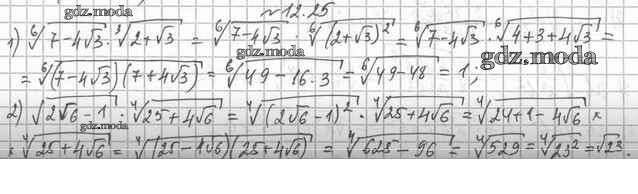 №12.25
gdz.moda
1) ⁶√(7-4√3) · ³√(2+√3) = ⁶√(7-4√3) · ⁶√((2+√3)²) = ⁶√(7-4√3) · ⁶√(4+3+4√3) =
gdz.moda
gdz.moda
= ⁶√((7-4√3)(7+4√3)) = ⁶√(49-16·3) = ⁶√(49-48) = 1;
2) √(2√6-1) · ⁴√(25+4√6) = ⁴√((2√6-1)²) · ⁴√(25+4√6) = ⁴√(24+1-4√6) ×
gdz.moda
× ⁴√(25+4√6) = ⁴√((25-4√6)(25+4√6)) = ⁴√(625-96) = ⁴√529 = ⁴√23² = √23.